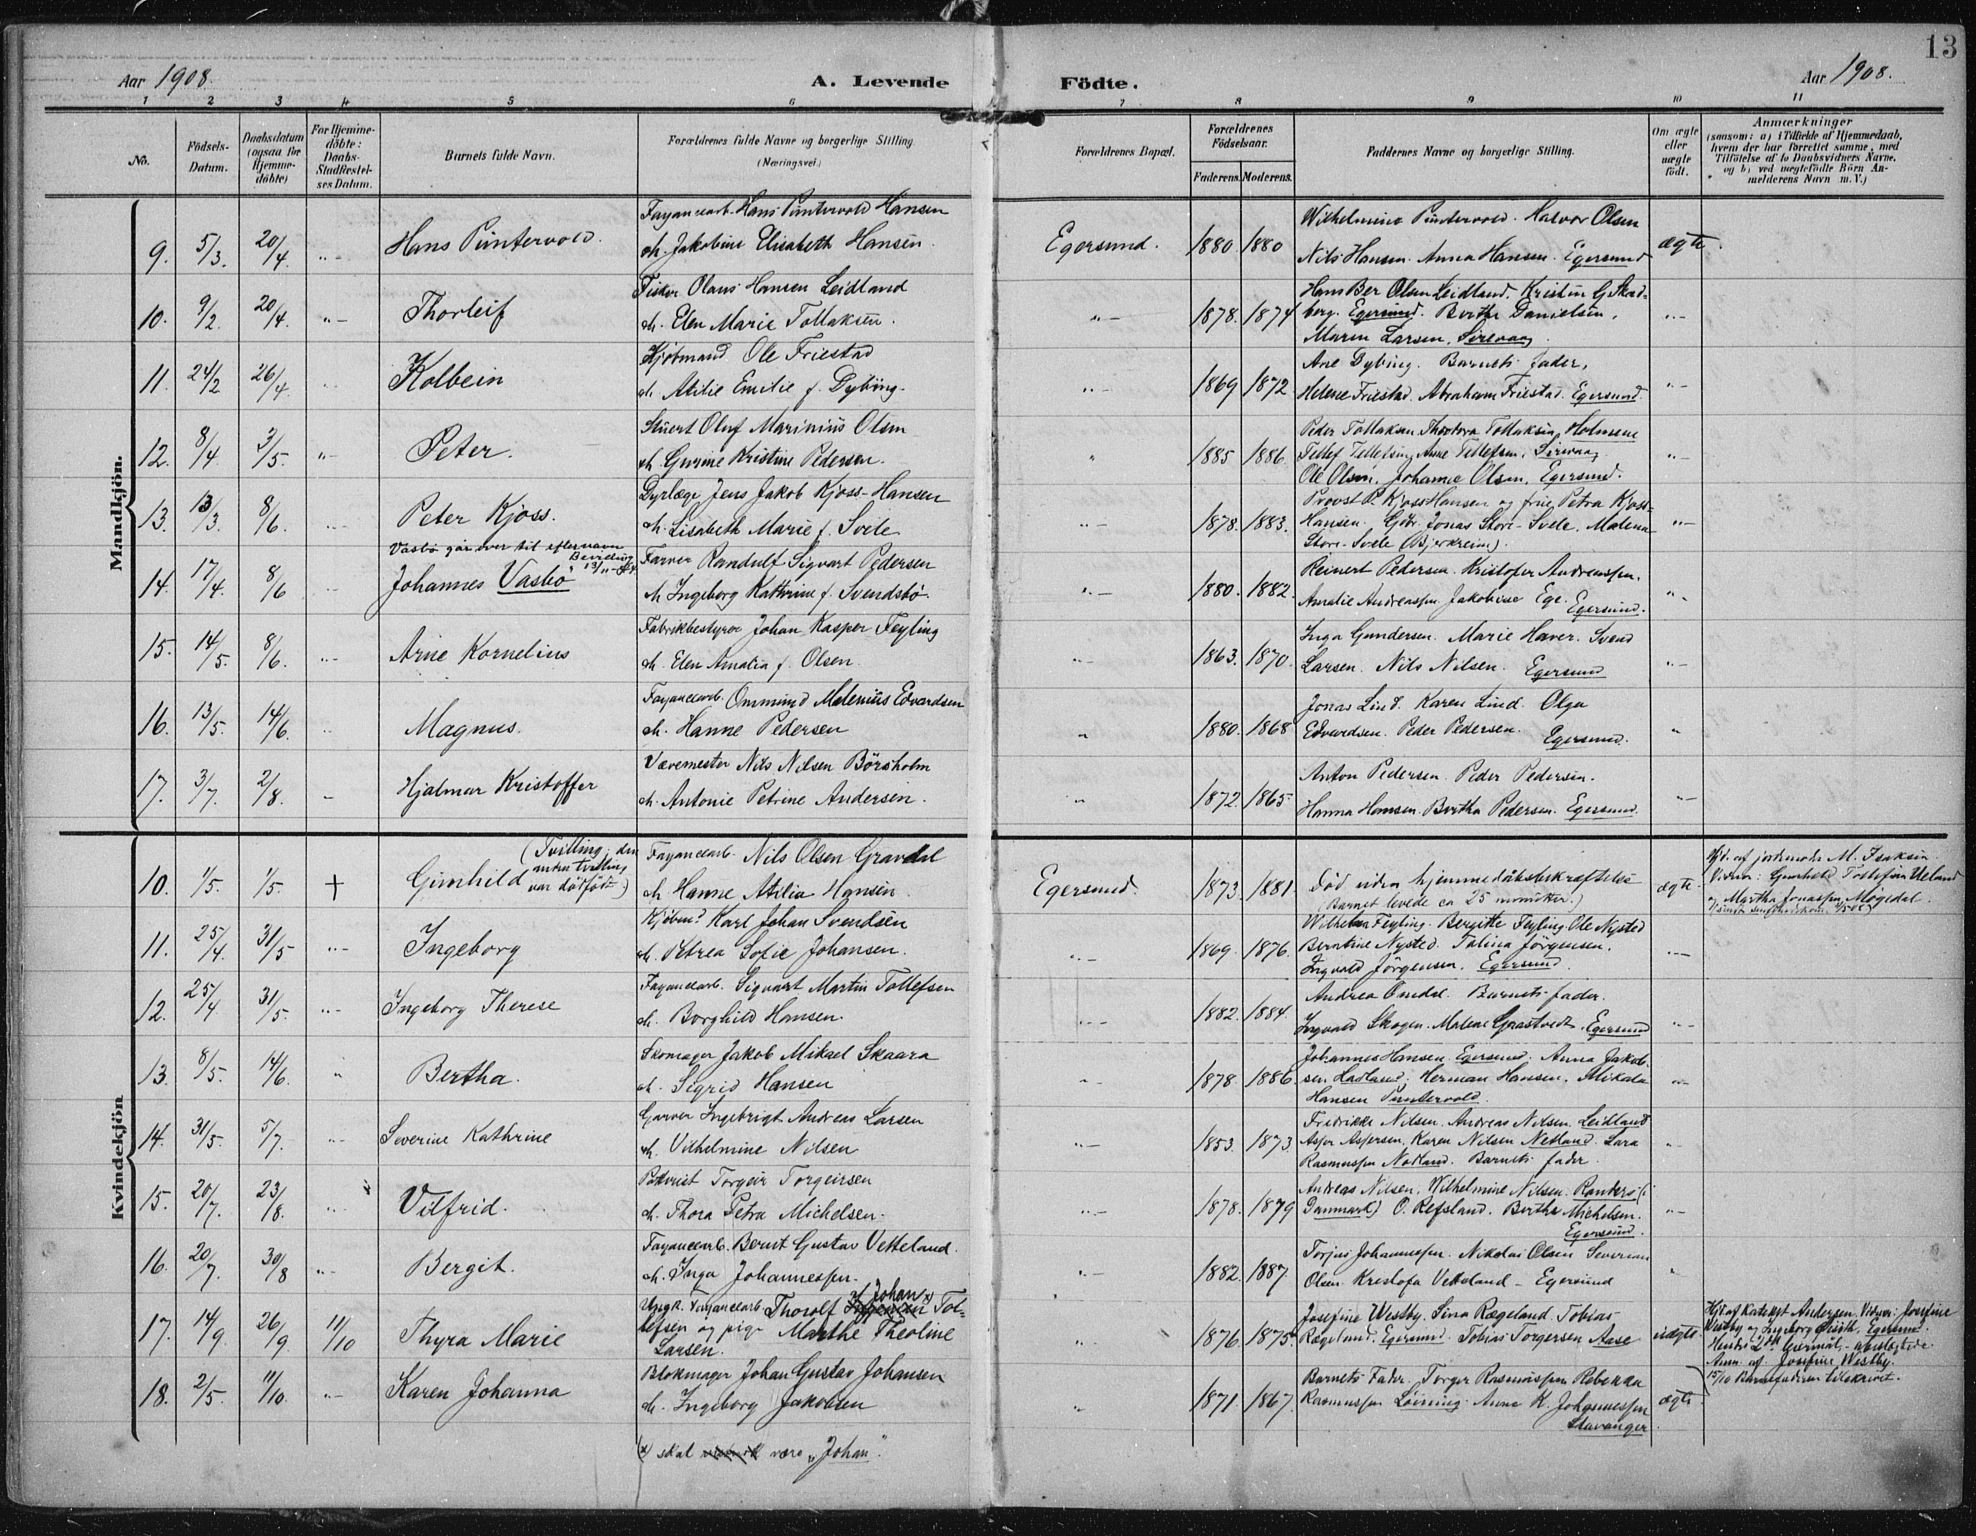 13
Aar 1908.
A. Levende
Fødte.
Aar 1908.
1 2 3 4 5 6 7 8 9 10 11
No.
Fødsels-Datum.
Daabsdatum (ogsaa for Hjemme-døbte)
For Hjemme-døbte: Daabs-Stadfæstel-ses Datum.
Barnets fulde Navn.
Forældrenes fulde Navne og borgerlige Stilling
(Næringsvei.)
Forældrenes Bopæl.
Forældrenes Fødselsaar.
Faderens. Moderens.
Faddernes Navne og borgerlige Stilling.
Om ægte eller uægte født.
Anmærkninger
(saasom: a) i Tilfælde af Hjemmedaab, hvem der har forrettet samme, med Tilføielse af to Daabsvidners Navne, og b) ved uægtefødte Børn An-melderens Navn m. V.)
Mandkjøn.
9. 5/3. 20/4. "- Hans Puntervold.
Fayancearb. Hans Puntervold Hansen
& Jakobine Elisabeth Hansen.
Egersund. 1880. 1880
Wilhelmine Puntervold. Halvor Olsen
Nils Hansen. Anna Hansen. Egersund
ægte.
10. 9/2. 20/4. "- Thorleif
Fisker Olaus Hansen Leidland
& Elen Marie Tollaksen.
"- 1878. 1874
Hans Ber Olsen Leidland. Kristin G Skad-
berg. Egersund. Berthe Danielsen,
Maren Larsen, Sirevaag
"-
11. 24/2 26/4. Kolbein
Kjøbmand Ole Friestad
& Atilie Emilie f. Dybing.
"- 1869 1872
Ane Dybing. Barnets fader,
Helene Friestad. Abraham Friestad. Egersund.
"-
12. 8/4 3/5. "- Peter.
Stuert Oluf Marinius Olsen
& Gurine Kristine Pedersen.
" 1885 1886.
Peder Tollaksen Theodora Tollaksen, Holmene
Tellef Tellefsen, Anne Tellefsen, Sirevaag
Ole Olsen, Johanne Olsen, Egersund.
"-
13. 13/3. 8/6. Peter Kjoss.
Dyrlæge Jens Jakob Kjoss-Hansen
& Lisabeth Marie f. Svele
"- 1878. 1883.
Provst P. Kjoss Hansen og frue Petra Kjoss-
Hansen. Gdr. Jonas Store-Svele. Malena
Store-Svele (Bjerkreim).
"-
14. 17/4. 8/6 Johannes Vasbø
Vasbø går over til efternavn
Bevilling 13/11-
Farver Randulf Sigvart Pedersen
& Ingeborg Kathrine f. Svendsbø.
"- 1880. 1882.
Reinert Pedersen. Kristofer Andreassen.
Amalie Andreassen Jakobine Ege. Egersund.
"-
15. 14/5. 8/6. "- Arne Kornelius
Fabrikbestyrer Johan Kasper Feyling
& Elen Amalia f. Olsen.
"- 1863. 1870.
Inga Gundersen. Marie Haver. Svend
Larsen. Nils Nilsen. Egersund
"-
16. 13/5. 14/6. Magnus.
Fayancearb. Ommund Melenius Edvardsen
& Hanne Pedersen
" 1880. 1868
Jonas Lind. Karen Lind. Olga
Edvardsen. Peder Pedersen. Egersund.
"
17. 3/7. 2/8. - Hjalmar Kristoffer
Vævemester Nils Nilsen Børsholm
& Antonie Petrine Andersen.
"- 1872 1865
Anton Pedersen. Peder Pedersen.
Hanna Hansen. Bertha Pedersen. Egersund.
"-
Kvindekjøn
10. 1/5. 1/5. + Gunhild
(Tvilling; den andre tvilling var dødfødt.)
Fayancearb. Nils Olsen Gravdal
& Hanne Atilia Hansen.
Egersund. 1873. 1881.
Død uden hjemmedåbsbekræftelse
(Barnet levede ca 25 minutter.)
ægte.
Hjd. af jordemoder M. Isaksen
Vidner: Gunhild Tollefsen Ueland
og Martha Jonassen Møgedal.
11. 25/4. 31/5 "- Ingeborg
Kjøbmd Karl Johan Svendsen
& Petrea Sofie Johansen.
"- 1869. 1876.
Wilhelm Feyling. Bergitte Feyling. Ole Nysted
Berntine Nysted. Talina Jørgensen.
Ingvald Jørgensen. Egersund.
"-
12. 25/4 31/5. "- Ingeborg Therese
Fayancearb. Sigvart Martin Tollefsen
& Borghild Hansen.
"- 1882. 1884.
Andrea Omdal. Barnets fader.
Ingvald Skogen. Malene Grastvedt. Egersund
"-
13. 8/5. 14/6. " Bertha.
Skomager Jakob Mikael Skaara
& Sigrid Hansen
"- 1878 1886
Johannes Hansen Egersund. Anna Jakob-
sen Hadland. Herman Hansen. Mikala
Hansen Puntervold.
"-
14. 31/5. 5/7. "- Severine Kathrine
Garver Ingebrigt Andreas Larsen
& Vilhelmine Nilsen
"- 1853. 1873
Fredrikke Nilsen. Andreas Nilsen. Leidland
Asper Aspersen. Karen Nilsen Netland. Sara
Rasmussen Netland. Barnets fader.
"
15. 20/7. 23/8. "- Vilfrid.
Torgeir Torgeirsen
& Thora Petra Michelsen.
"- 1878. 1879
Andreas Nilsen. Wilhelmine Nilsen. Randers (i
Danmark) O. Refsland. Berthe Michelsen.
Egersund.
"-
16. 20/7. 30/8 "- Bergit.
Fayancearb. Bernt Gustav Vetteland.
& Inga Johannessen.
"- 1882. 1887.
Torjus Johannessen. Nikolai Olsen Severine
Olsen Kristofa Vetteland - Egersund
"
17. 14/9. 26/9 11/10 Thyra Marie
Ungk. Fayancearb. Thorolf Johan x) Tol-
lefsen og pige Marthe Theoline
Larsen.
" 1876. 1875
Josefine Westby. Sina Rægeland. Tobias
Rægeland. Egersund. Tobias Torgersen Aase
uægte.
Hjd. af Kateket Andersen. Vidner: Josefine
Westby og Ingeborg Egersund.
Hendes 2det leiermål,
Anm. af Josefine Westby.
15/10 Barnefaderen tilskrevet.
18. 2/5. 11/10. "- Karen Johanna
Blokmager Johan Gustav Johansen
& Ingeborg Jakobsen
" 1871. 1867.
Barnets Fader. Torger Rasmussen Rebekka
Rasmussen Løining. Anna K. Johannessen
Stavanger
ægte
(x) skal være „Johan".